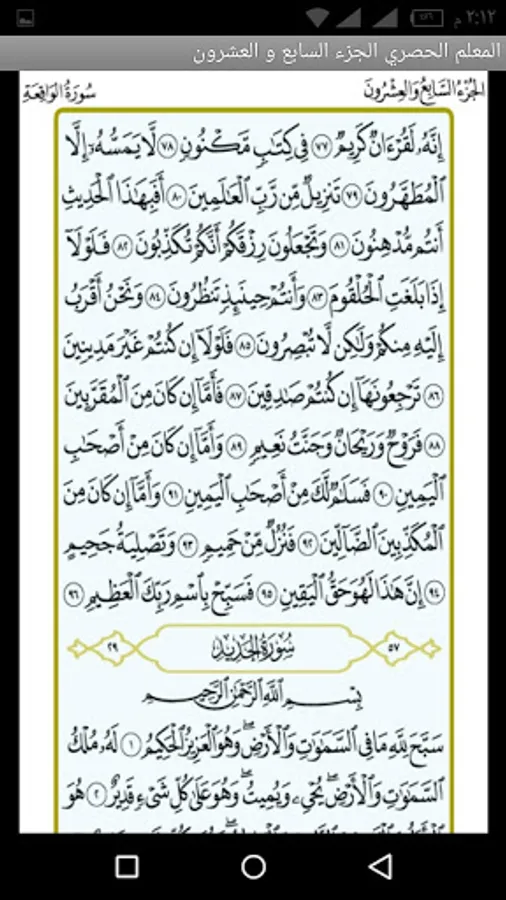 ٢:١٢ م
المعلم الحصري الجزء السابع و العشرون
الجُزْءُ السَّابِعُ وَالعِشْرُونَ
سُورَةُ الوَاقِعَةِ
إِنَّهُۥ لَقُرْءَانٌ كَرِيمٌ ٧٧ فِى كِتَٰبٍ مَّكْنُونٍ ٧٨ لَّا يَمَسُّهُۥٓ إِلَّا
ٱلْمُطَهَّرُونَ ٧٩ تَنزِيلٌ مِّن رَّبِّ ٱلْعَٰلَمِينَ ٨٠ أَفَبِهَٰذَا ٱلْحَدِيثِ
أَنتُم مُّدْهِنُونَ ٨١ وَتَجْعَلُونَ رِزْقَكُمْ أَنَّكُمْ تُكَذِّبُونَ ٨٢ فَلَوْلَآ
إِذَا بَلَغَتِ ٱلْحُلْقُومَ ٨٣ وَأَنتُمْ حِينَئِذٍ تَنظُرُونَ ٨٤ وَنَحْنُ أَقْرَبُ
إِلَيْهِ مِنكُمْ وَلَٰكِن لَّا تُبْصِرُونَ ٨٥ فَلَوْلَآ إِن كُنتُمْ غَيْرَ مَدِينِينَ
٨٦ تَرْجِعُونَهَآ إِن كُنتُمْ صَٰدِقِينَ ٨٧ فَأَمَّآ إِن كَانَ مِنَ ٱلْمُقَرَّبِينَ
٨٨ فَرَوْحٌ وَرَيْحَانٌ وَجَنَّتُ نَعِيمٍ ٨٩ وَأَمَّآ إِن كَانَ مِنْ أَصْحَٰبِ
ٱلْيَمِينِ ٩٠ فَسَلَٰمٌ لَّكَ مِنْ أَصْحَٰبِ ٱلْيَمِينِ ٩١ وَأَمَّآ إِن كَانَ مِنَ
ٱلْمُكَذِّبِينَ ٱلضَّآلِّينَ ٩٢ فَنُزُلٌ مِّنْ حَمِيمٍ ٩٣ وَتَصْلِيَةُ جَحِيمٍ
٩٤ إِنَّ هَٰذَا لَهُوَ حَقُّ ٱلْيَقِينِ ٩٥ فَسَبِّحْ بِٱسْمِ رَبِّكَ ٱلْعَظِيمِ ٩٦
٥٧ سُورَةُ الحَدِيدِ ٢٩
بِسْمِ ٱللَّهِ ٱلرَّحْمَٰنِ ٱلرَّحِيمِ
سَبَّحَ لِلَّهِ مَا فِى ٱلسَّمَٰوَٰتِ وَٱلْأَرْضِ ۖ وَهُوَ ٱلْعَزِيزُ ٱلْحَكِيمُ ١ لَهُۥ مُلْكُ
ٱلسَّمَٰوَٰتِ وَٱلْأَرْضِ ۖ يُحْىِۦ وَيُمِيتُ ۖ وَهُوَ عَلَىٰ كُلِّ شَىْءٍ قَدِيرٌ ٢ هُوَ